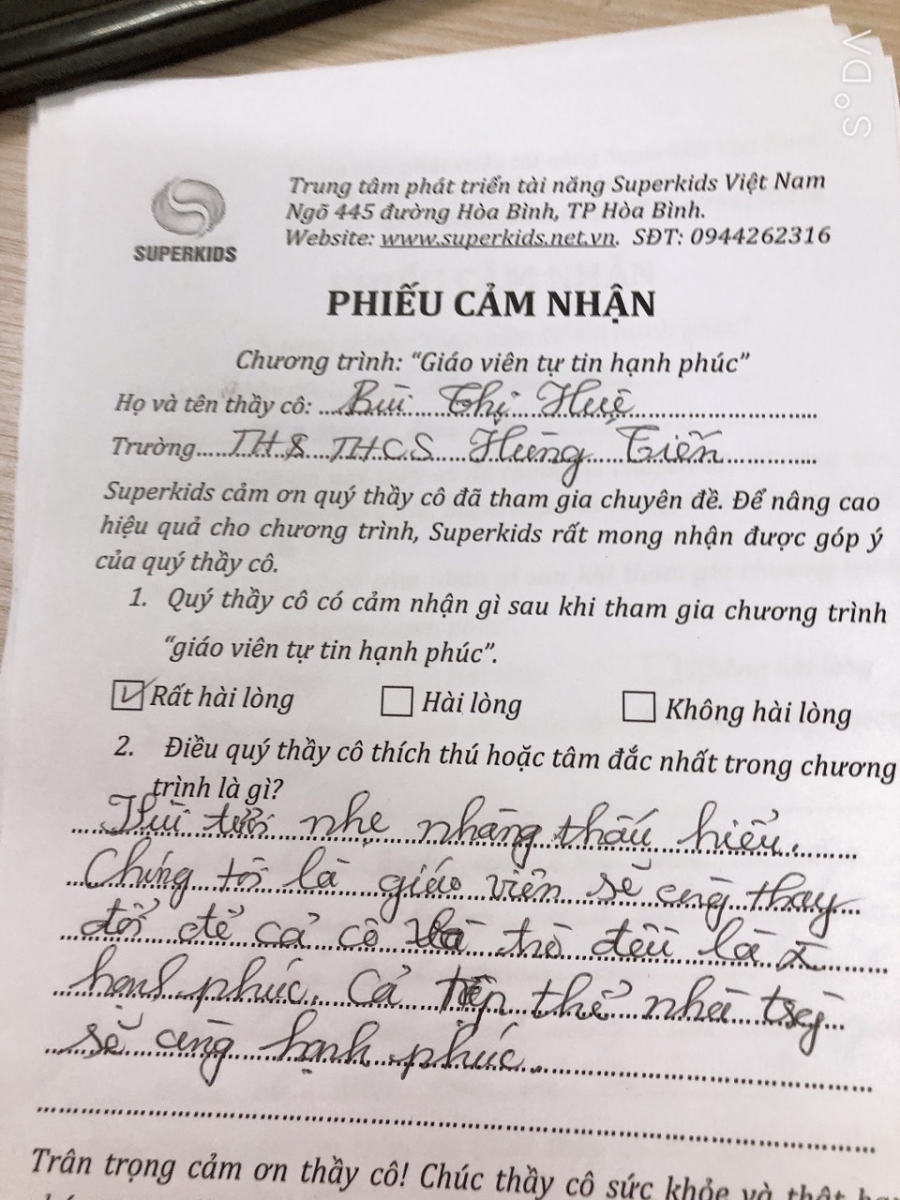 SODA
SUPERKIDS
Trung tâm phát triển tài năng Superkids Việt Nam
Ngõ 445 đường Hòa Bình, TP Hòa Bình.
Website: www.superkids.net.vn. SĐT: 0944262316
PHIẾU CẢM NHẬN
Chương trình: “Giáo viên tự tin hạnh phúc”
Họ và tên thầy cô: Bùi Thị Huệ
Trường TH & THCS Hùng Tiến
Superkids cảm ơn quý thầy cô đã tham gia chuyên đề. Để nâng cao
hiệu quả cho chương trình, Superkids rất mong nhận được góp ý
của quý thầy cô.
1. Quý thầy cô có cảm nhận gì sau khi tham gia chương trình
“giáo viên tự tin hạnh phúc”.
Rất hài lòng Hài lòng Không hài lòng
2. Điều quý thầy cô thích thú hoặc tâm đắc nhất trong chương
trình là gì?
nhẹ nhàng thấu hiểu.
Chúng tôi là giáo viên sẽ cùng thay
đổi để cả cô và trò đều là
hạnh phúc. Cả tập thể nhà trường
sẽ cùng hạnh phúc.
Trân trọng cảm ơn thầy cô! Chúc thầy cô sức khỏe và thật